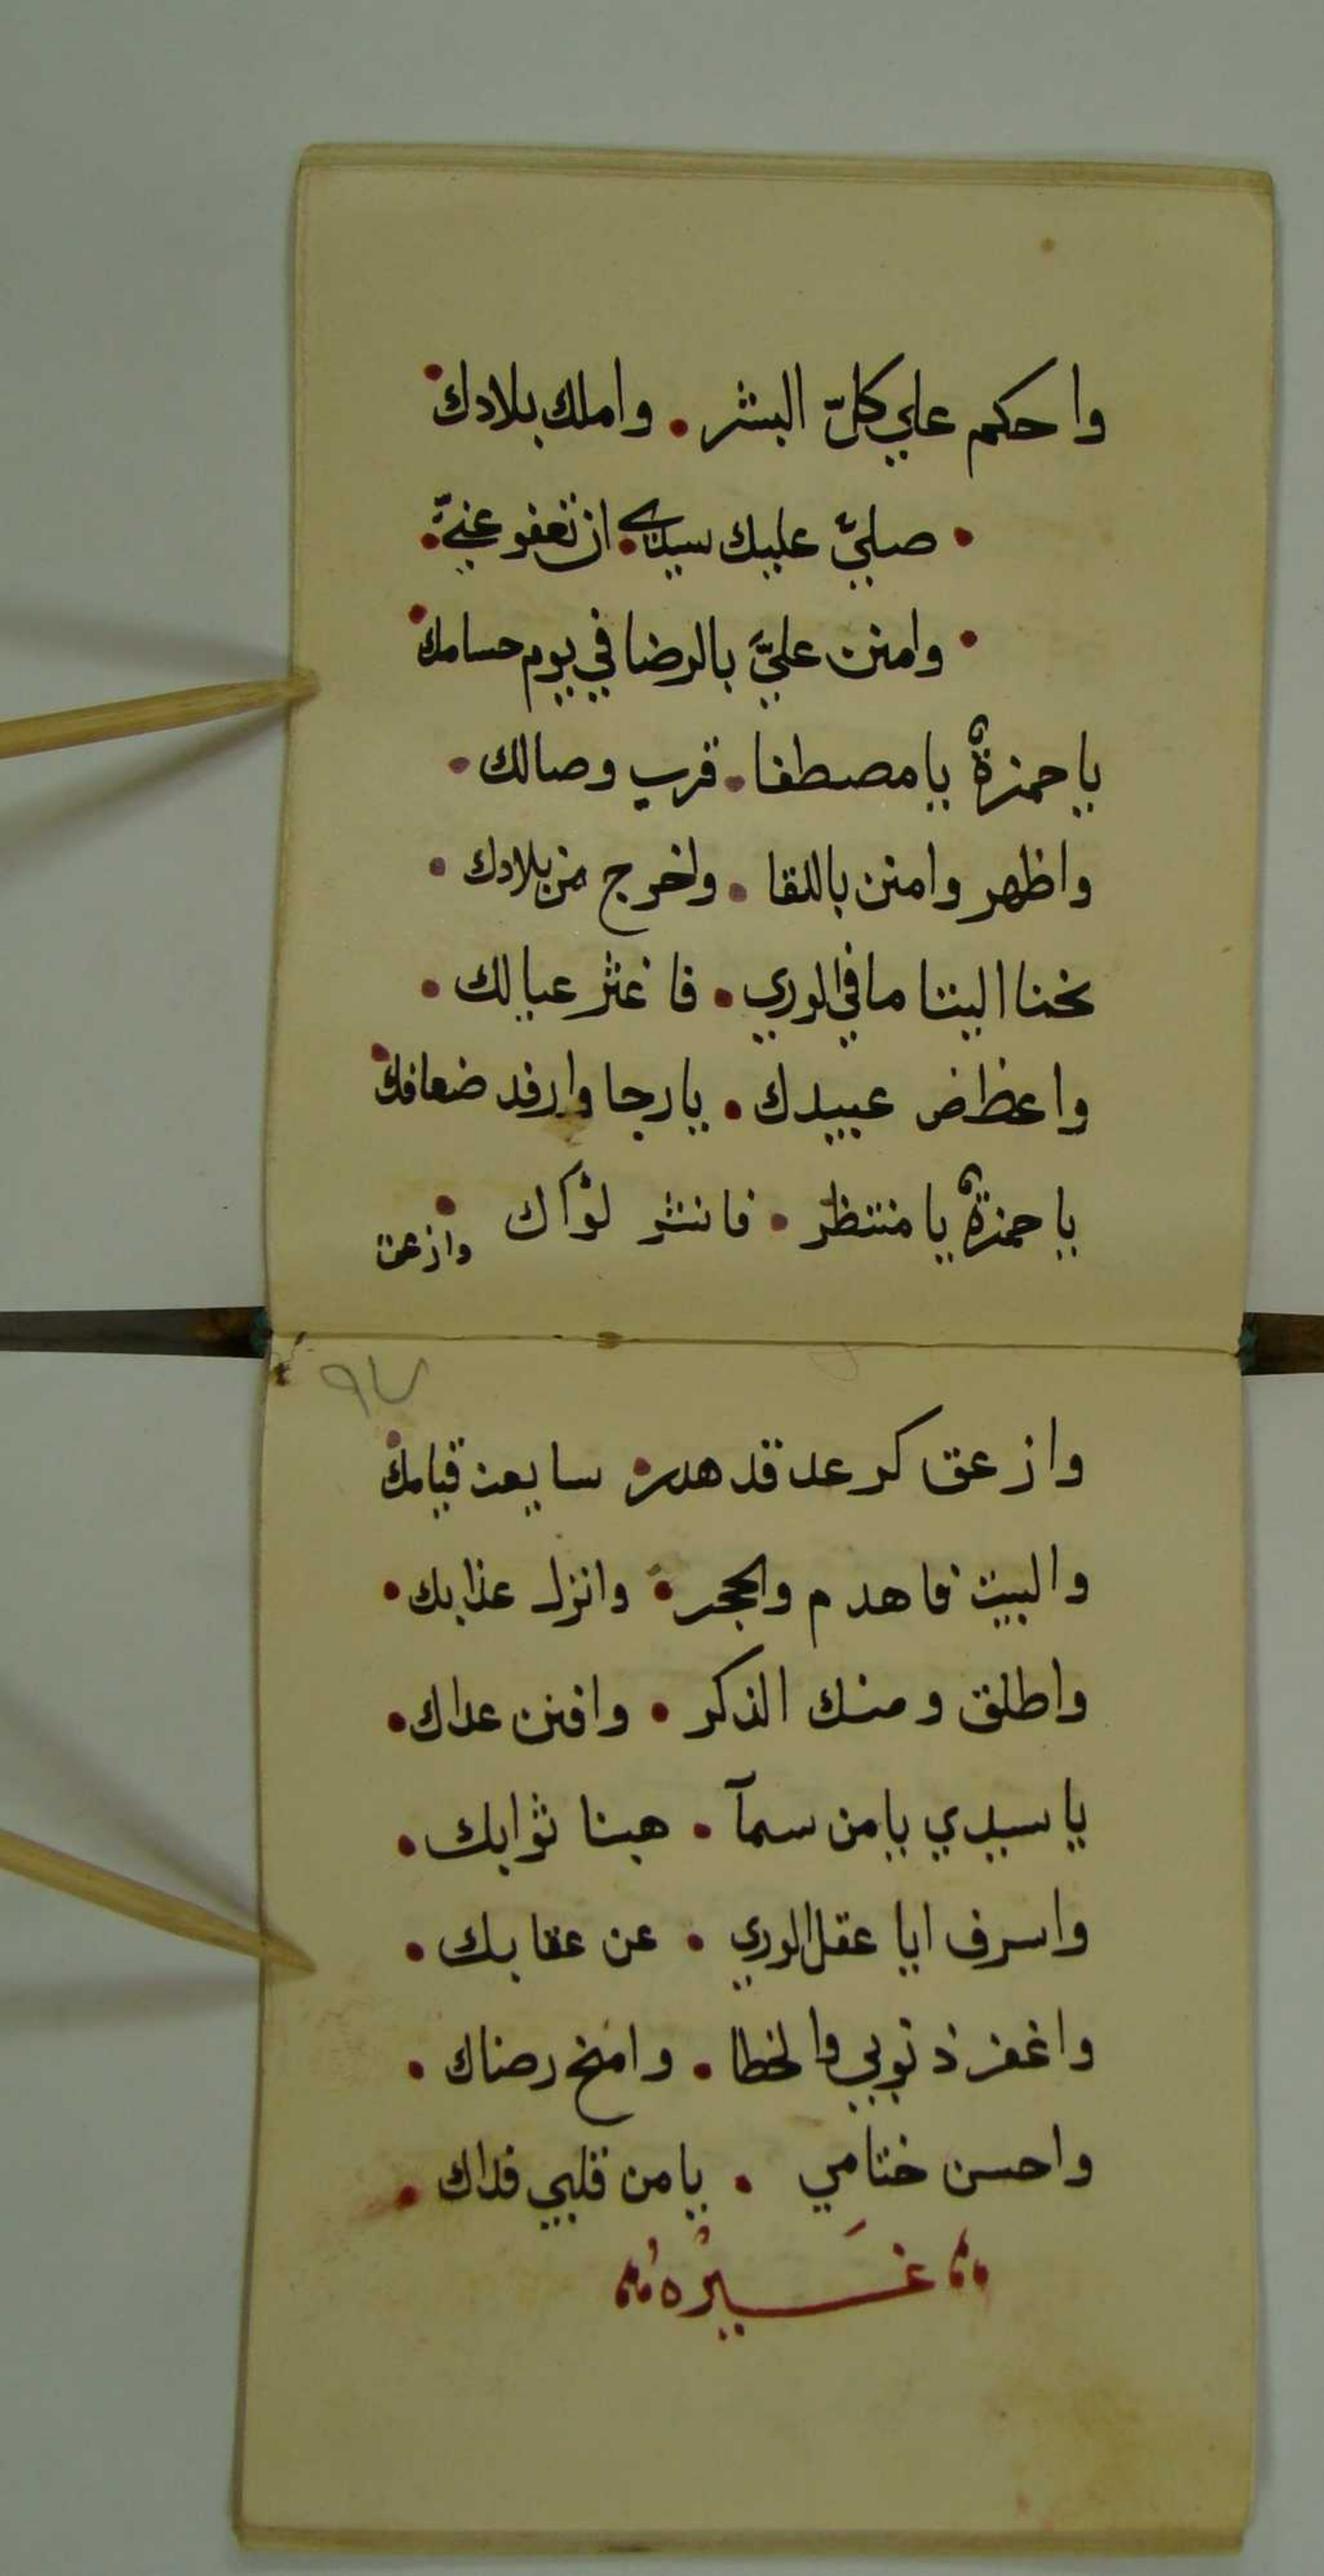 واحكم علي كلّ البشر . واملك بلادك
. صليّ عليك سيدي . ان تعفو عنيّ .
. وامنن عليَّ بالرضا في يوم حسامك
يا حمزةٌ يا مصطفا . قرب وصالك .
واظهر وامنن باللقا . واخرج من بلادك .
نحنا اليتنا ما في الوري . فا غثر عيالك .
واعظاض عبيدك . يا رجا وارفد ضعافك
يا حمزةٌ يا منتظر . فانشر لوآك .
وازعق
٩٧
وازعق كرعد قد هدر . سايعت قيامك
والبيت فاهدم والحجر . وانزل عذابك .
واطلق ومنك الذكر . وافنن عداك .
يا سيدي يا من سمآ . هبنا ثوابك .
واسرف ايا عقل الوري . عن عقابك .
واغفر ذنوبي والخطا . وامنح رضاك .
واحسن ختامي . يا من قلبي فداك .
غيره